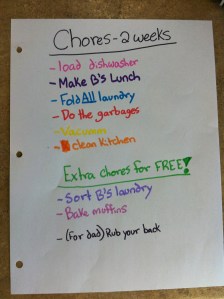 Chores-2 weeks
- load dishwasher
- Make B's Lunch
- Fold All laundry
- Do the garbages
- Vacuum
- clean kitchen
Extra chores for FREE!
- Sort B's laundry
- Bake muffins
- (For dad) Rub your back